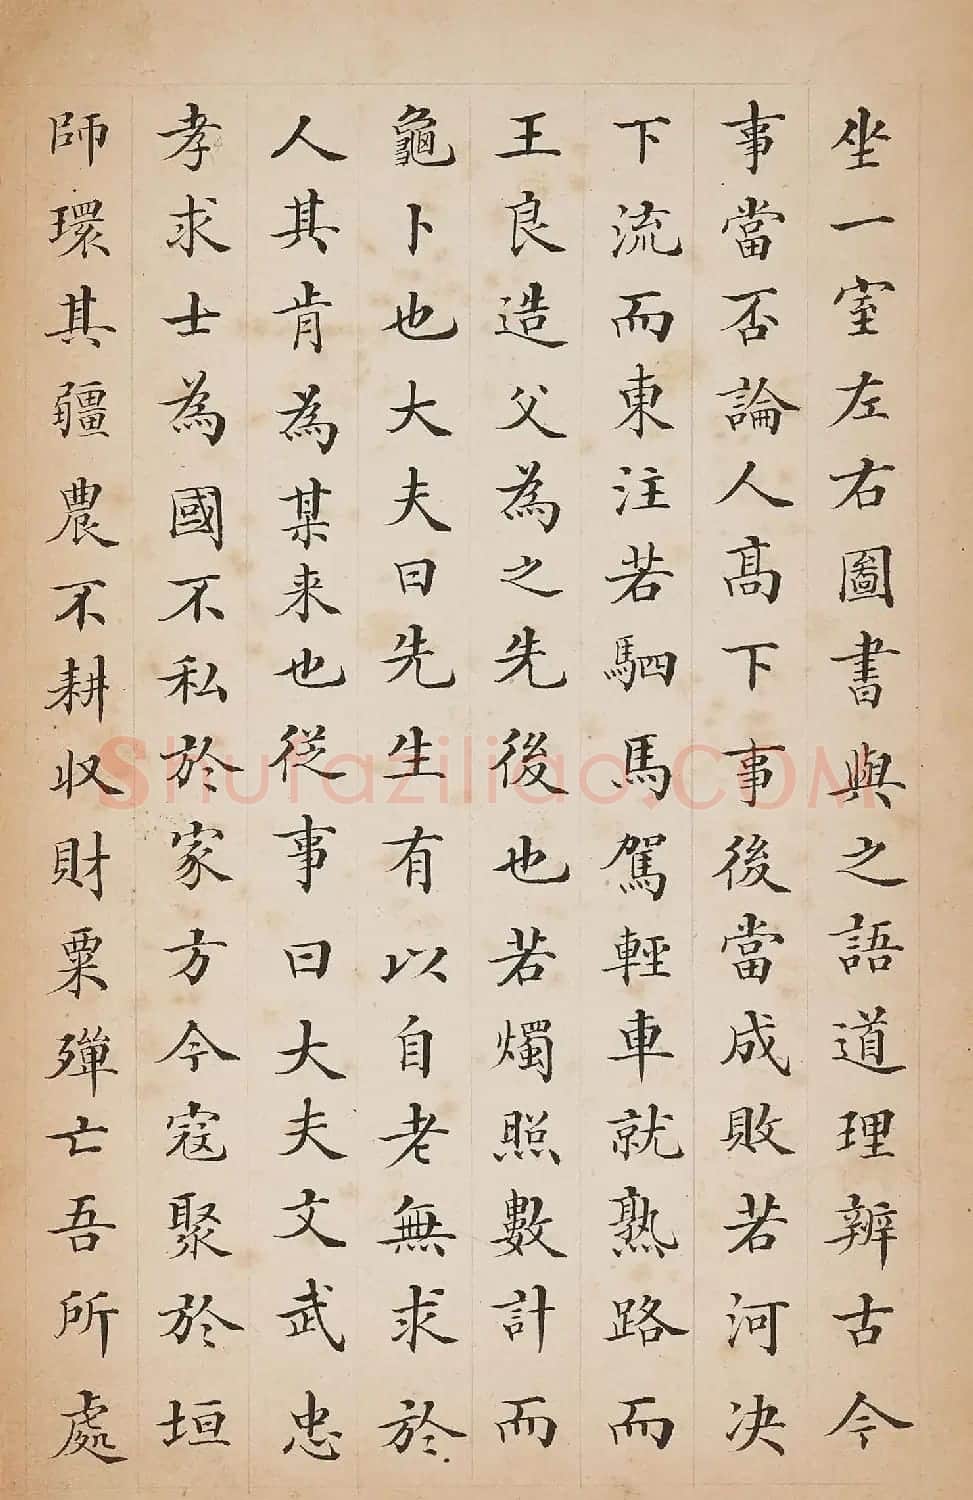 坐一室左右圖書與之語道理辨古今
事當否論人高下事後當成敗若河决
下流而東注若駟馬駕輕車就熟路而
王良造父為之先後也若燭照數計而
龜卜也大夫曰先生有以自老無求於
人其肯為某来也従事曰大夫文武忠
孝求士為國不私於家方今寇聚於垣
師環其疆農不耕収財粟殫亡吾所處
Shufaziliao.COM